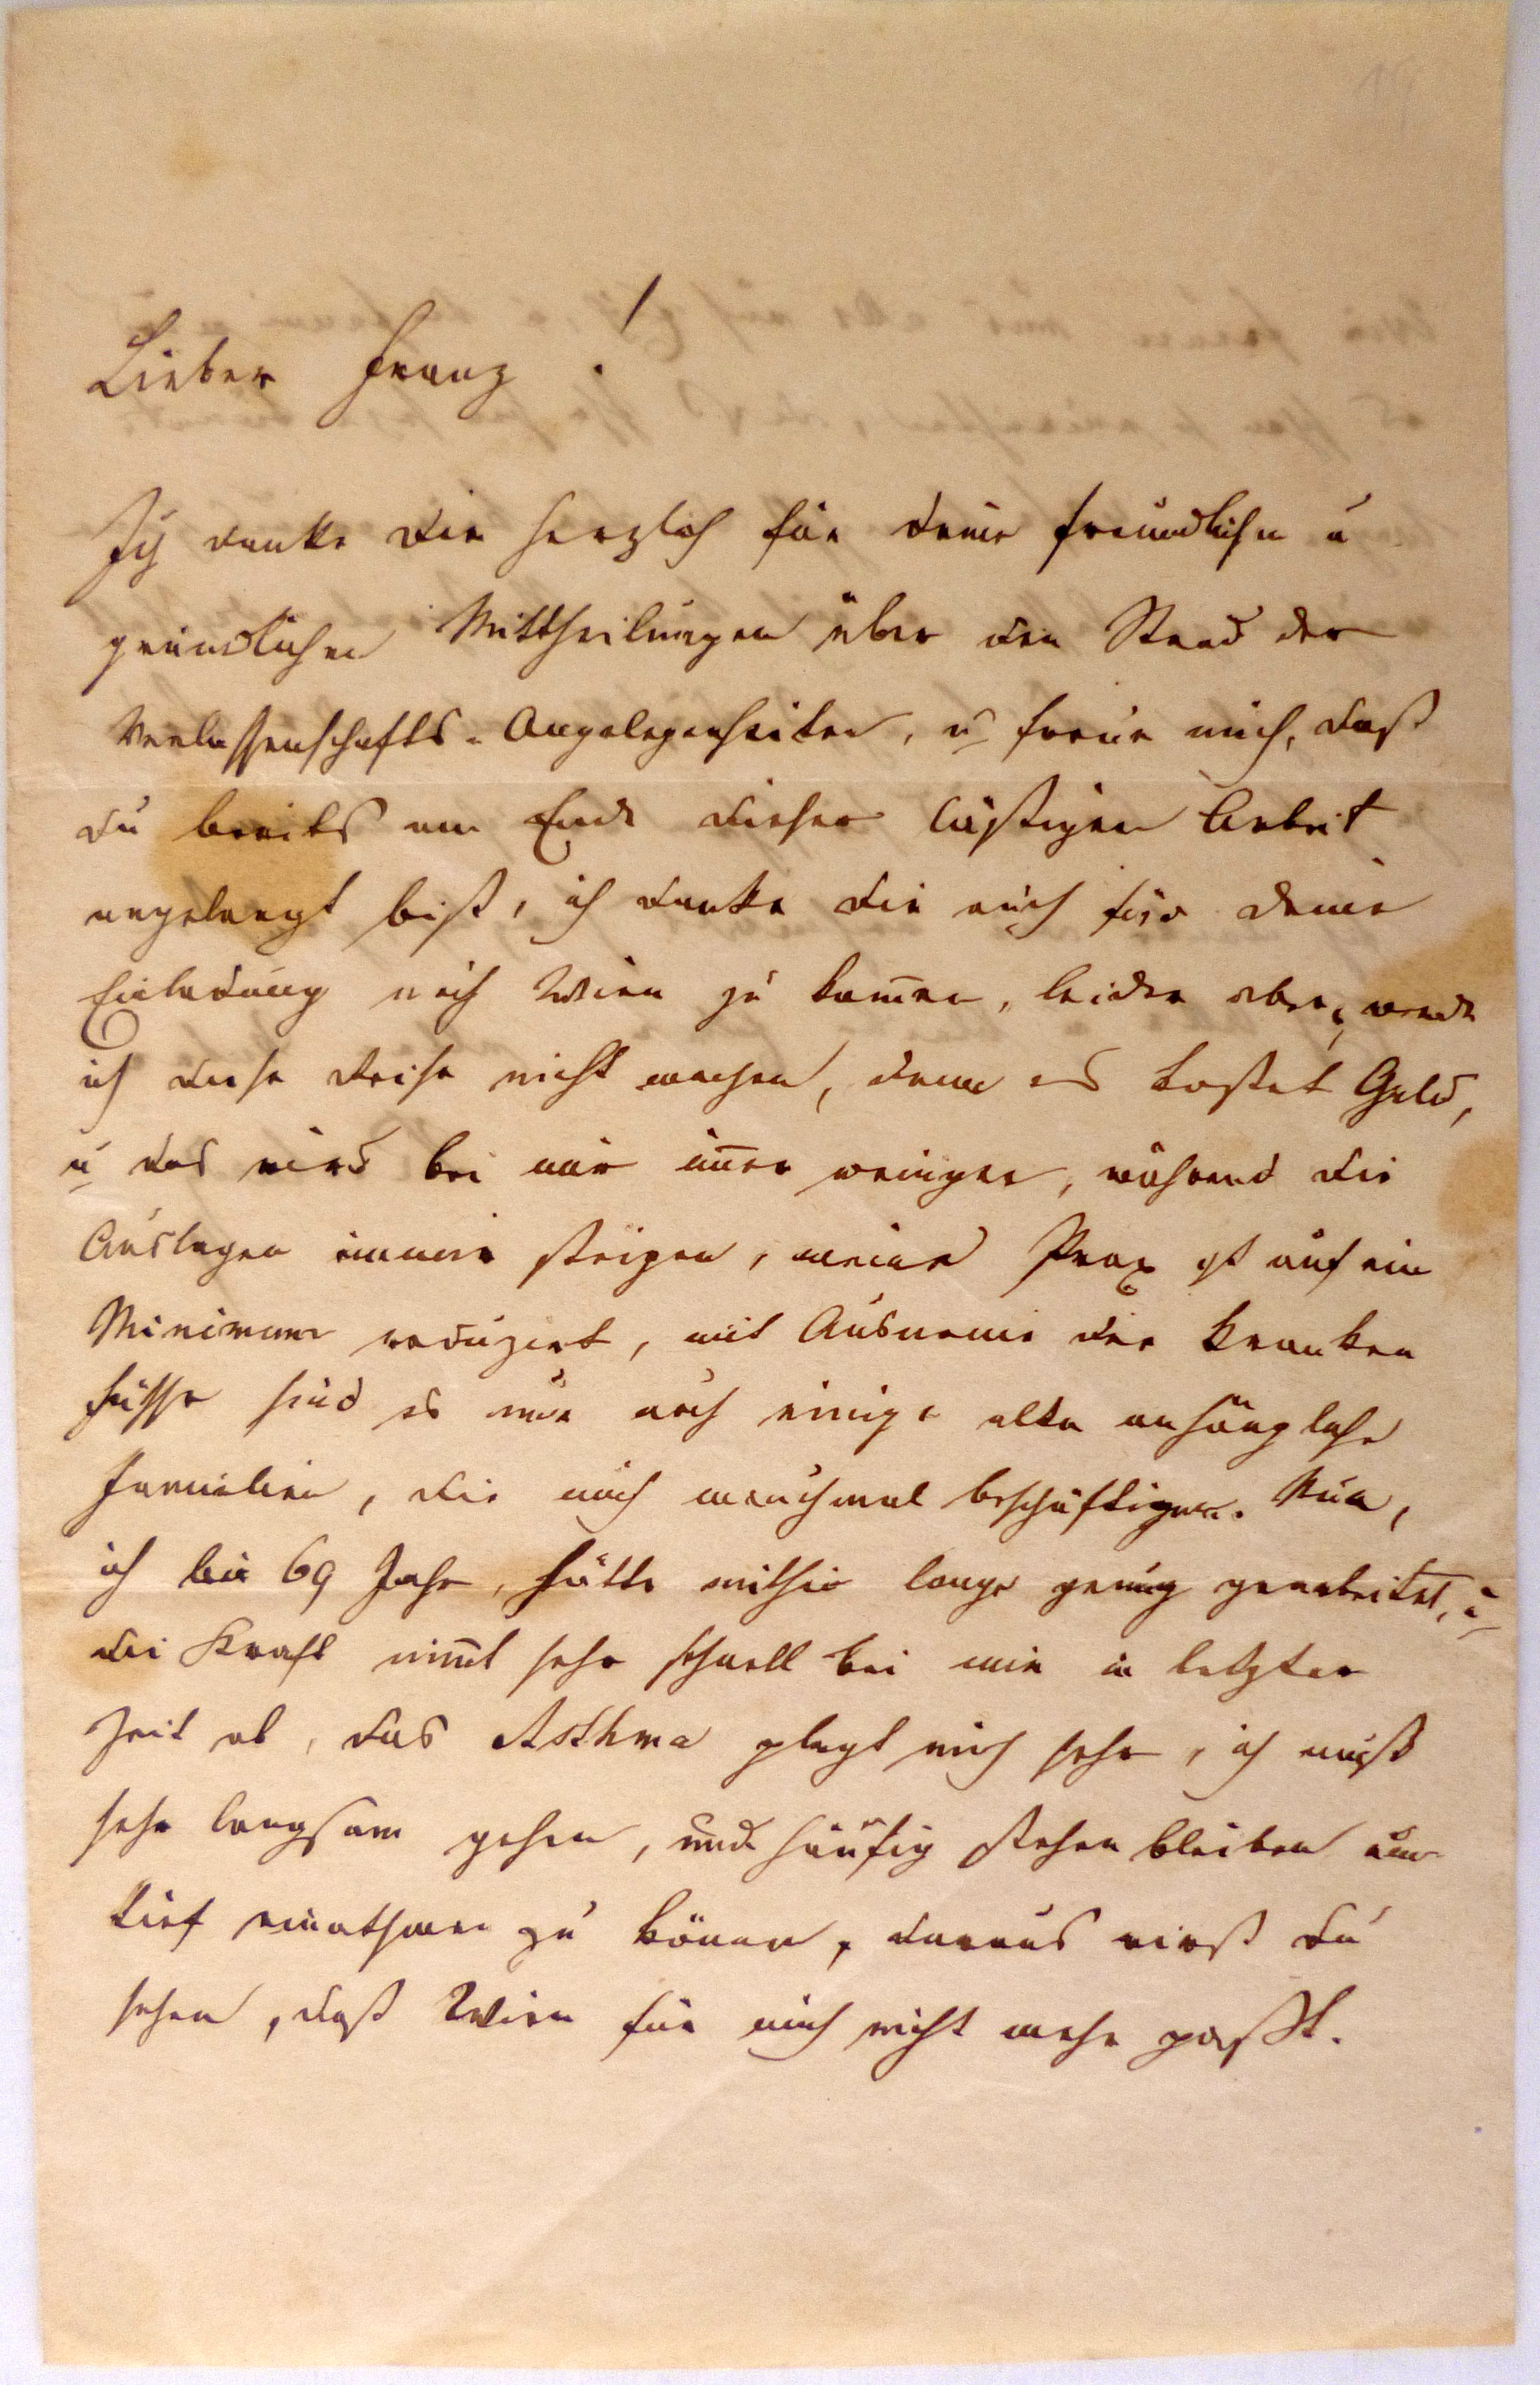 Lieber Franz!
Ich danke dir herzlich für deine freundlichen u
gründlichen Mittheilungen über den Stand der
Verlassenschafts-Angelegenheiten, u freue mich, daß
du bereits am Ende dieser lästigen Arbeit
angelangt bist, ich danke dir auch für deine
Einladung nach Wien zu kom̄en, leider aber, werde
ich diese Reise nicht machen, denn es kostet Geld,
u das wird bei mir im̄er weniger, während die
Auslagen immer steigen, meine Prax ist auf ein
Minimum reduzirt, mit Ausname der Kranken
häuser sind es nur noch einige alte anhängliche
Familien, die mich manchmal beschäftigen. Nun,
ich bin 69 Jahr, hätte mithin lange genug gearbeitet, u
die Kraft nim̄t sehr schnell bei mir in letzter
Zeit ab, das Asthma plagt mich sehr, ich muß
sehr langsam gehen, und häufig stehen bleiben um
tief einathmen zu können, daraus wirst du
sehen, daß Wien für mich nicht mehr paßt.